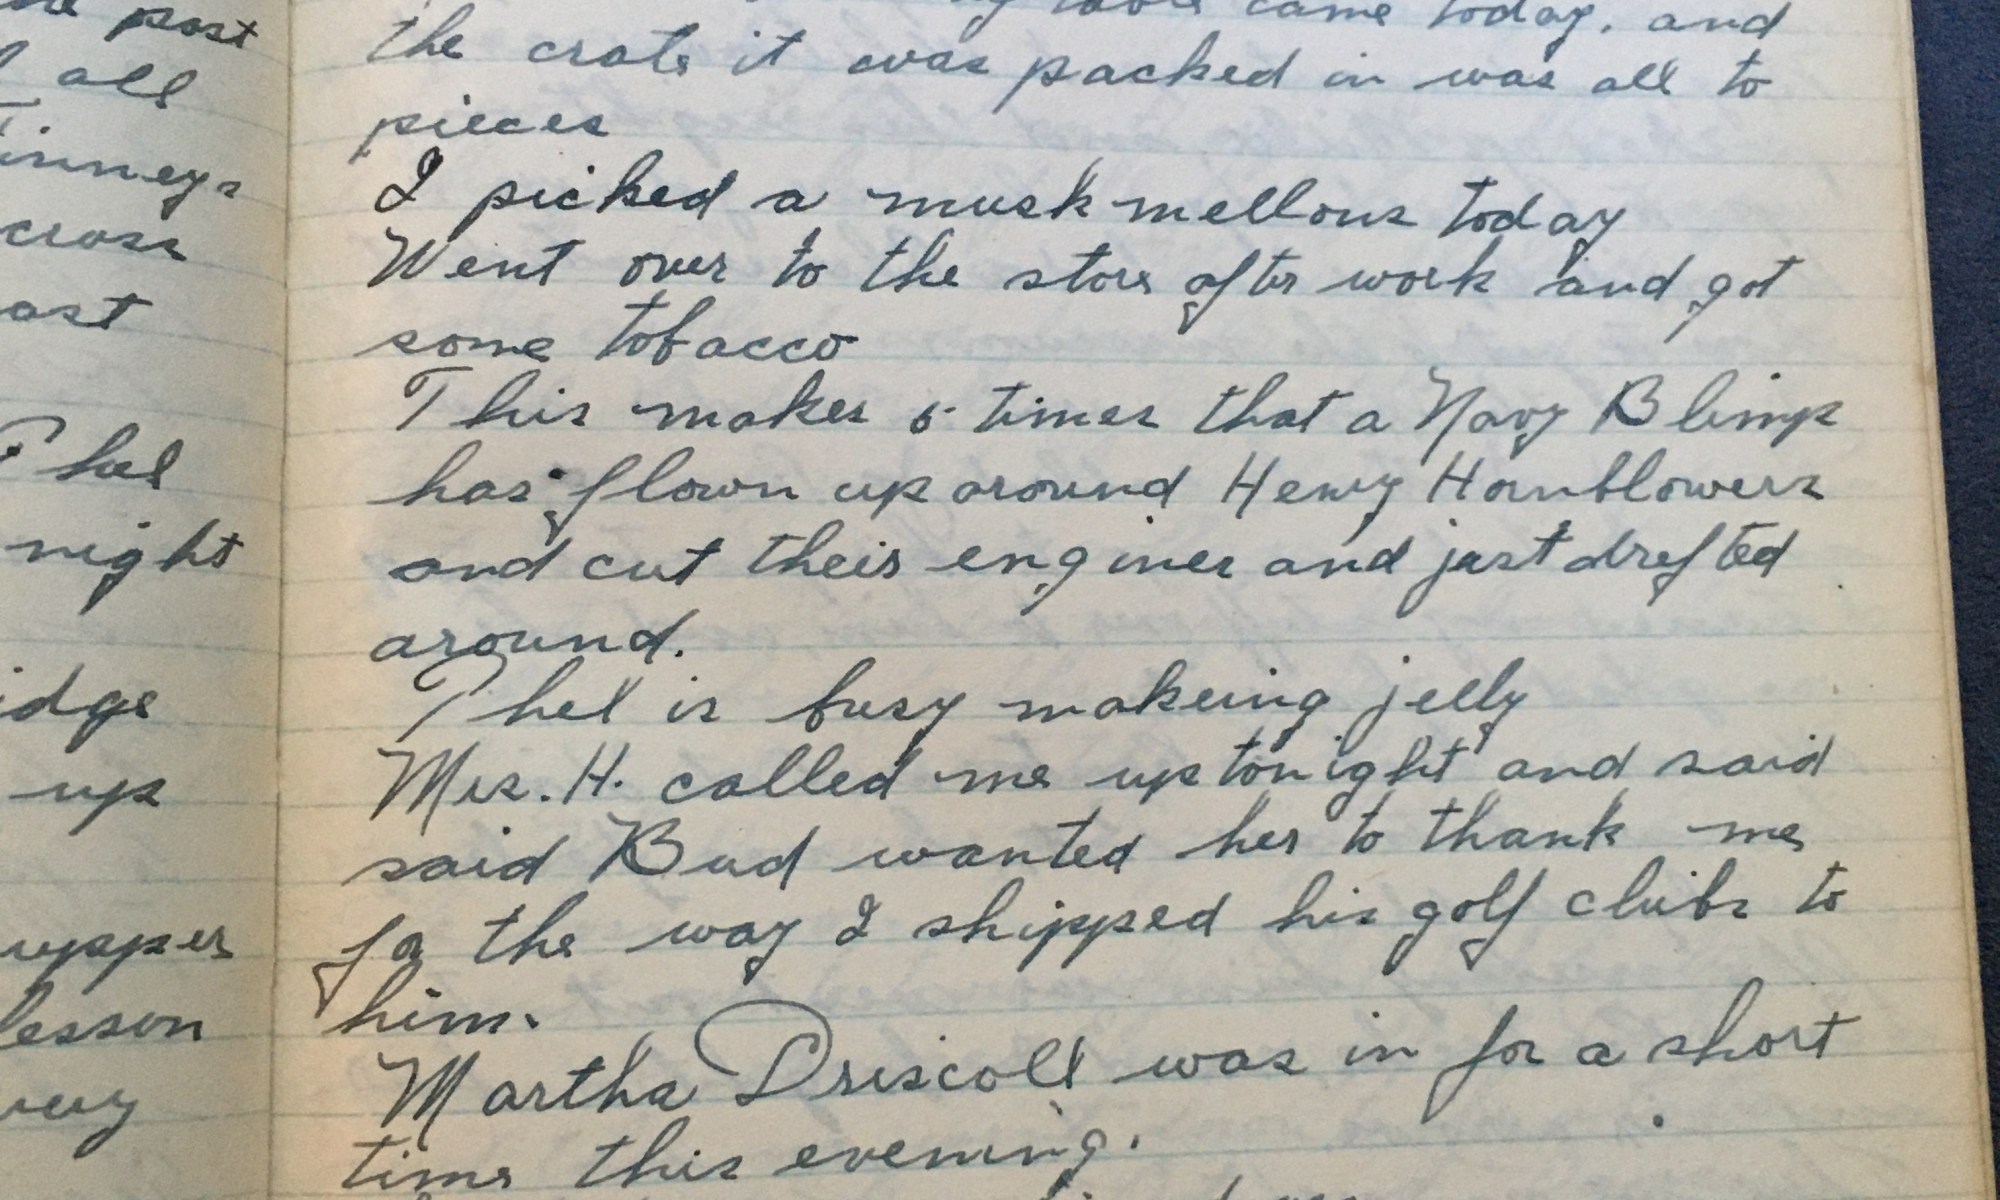 post
all
inneys
cross
ast
Thel
night
idge
up
upper
lesson
came today. and
the crate it was packed in was all to
pieces
I picked a musk mellons today
Went over to the store after work and got
some tobacco
This makes 5 times that a Navy Blimp
has flown up around Henry Hornblowers
and cut theis engines and just drefted
around.
Thel is busy makeing jelly
Mrs. H. called me up tonight and said
said Bud wanted her to thank me
for the way I shipped his golf clubs to
him.
Martha Driscoll was in for a short
time this evening.